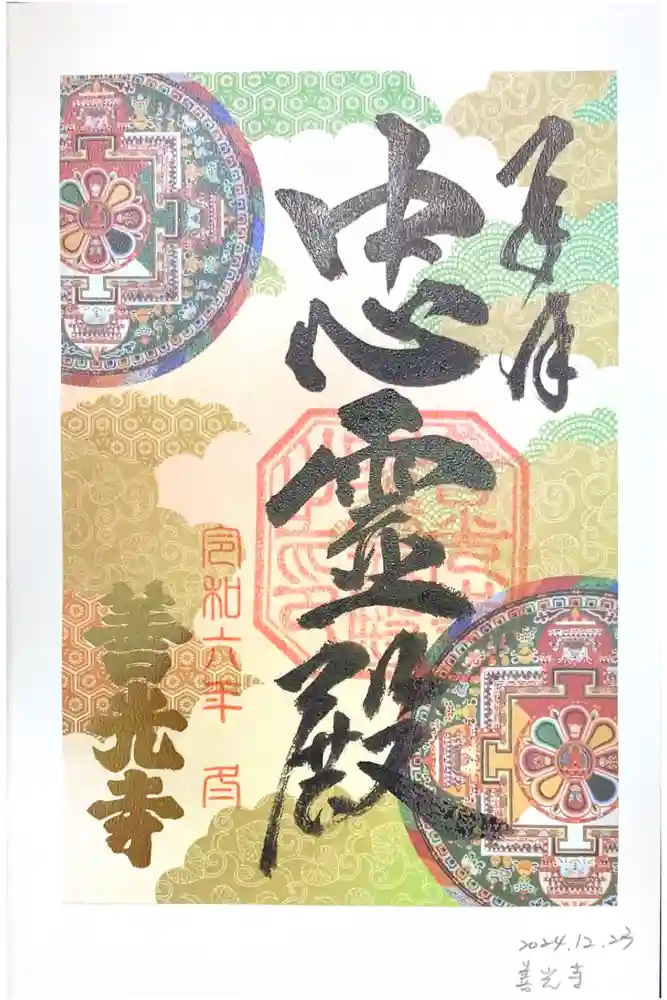 奉拝
忠霊殿
令和六年 冬
善光寺
2024.12.23
善光寺